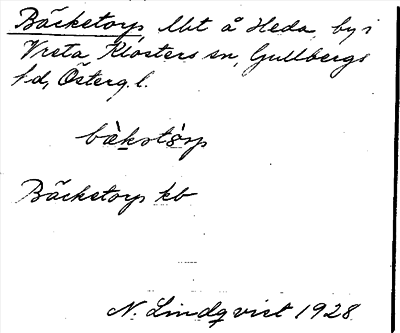 Bäcketorp, lht å Heda, by i
Vreta Klosters sn, Gullbergs
hd, Österg. l.
bä̀kstòrp
Bäcketorp kb
N. Lindqvist 1928